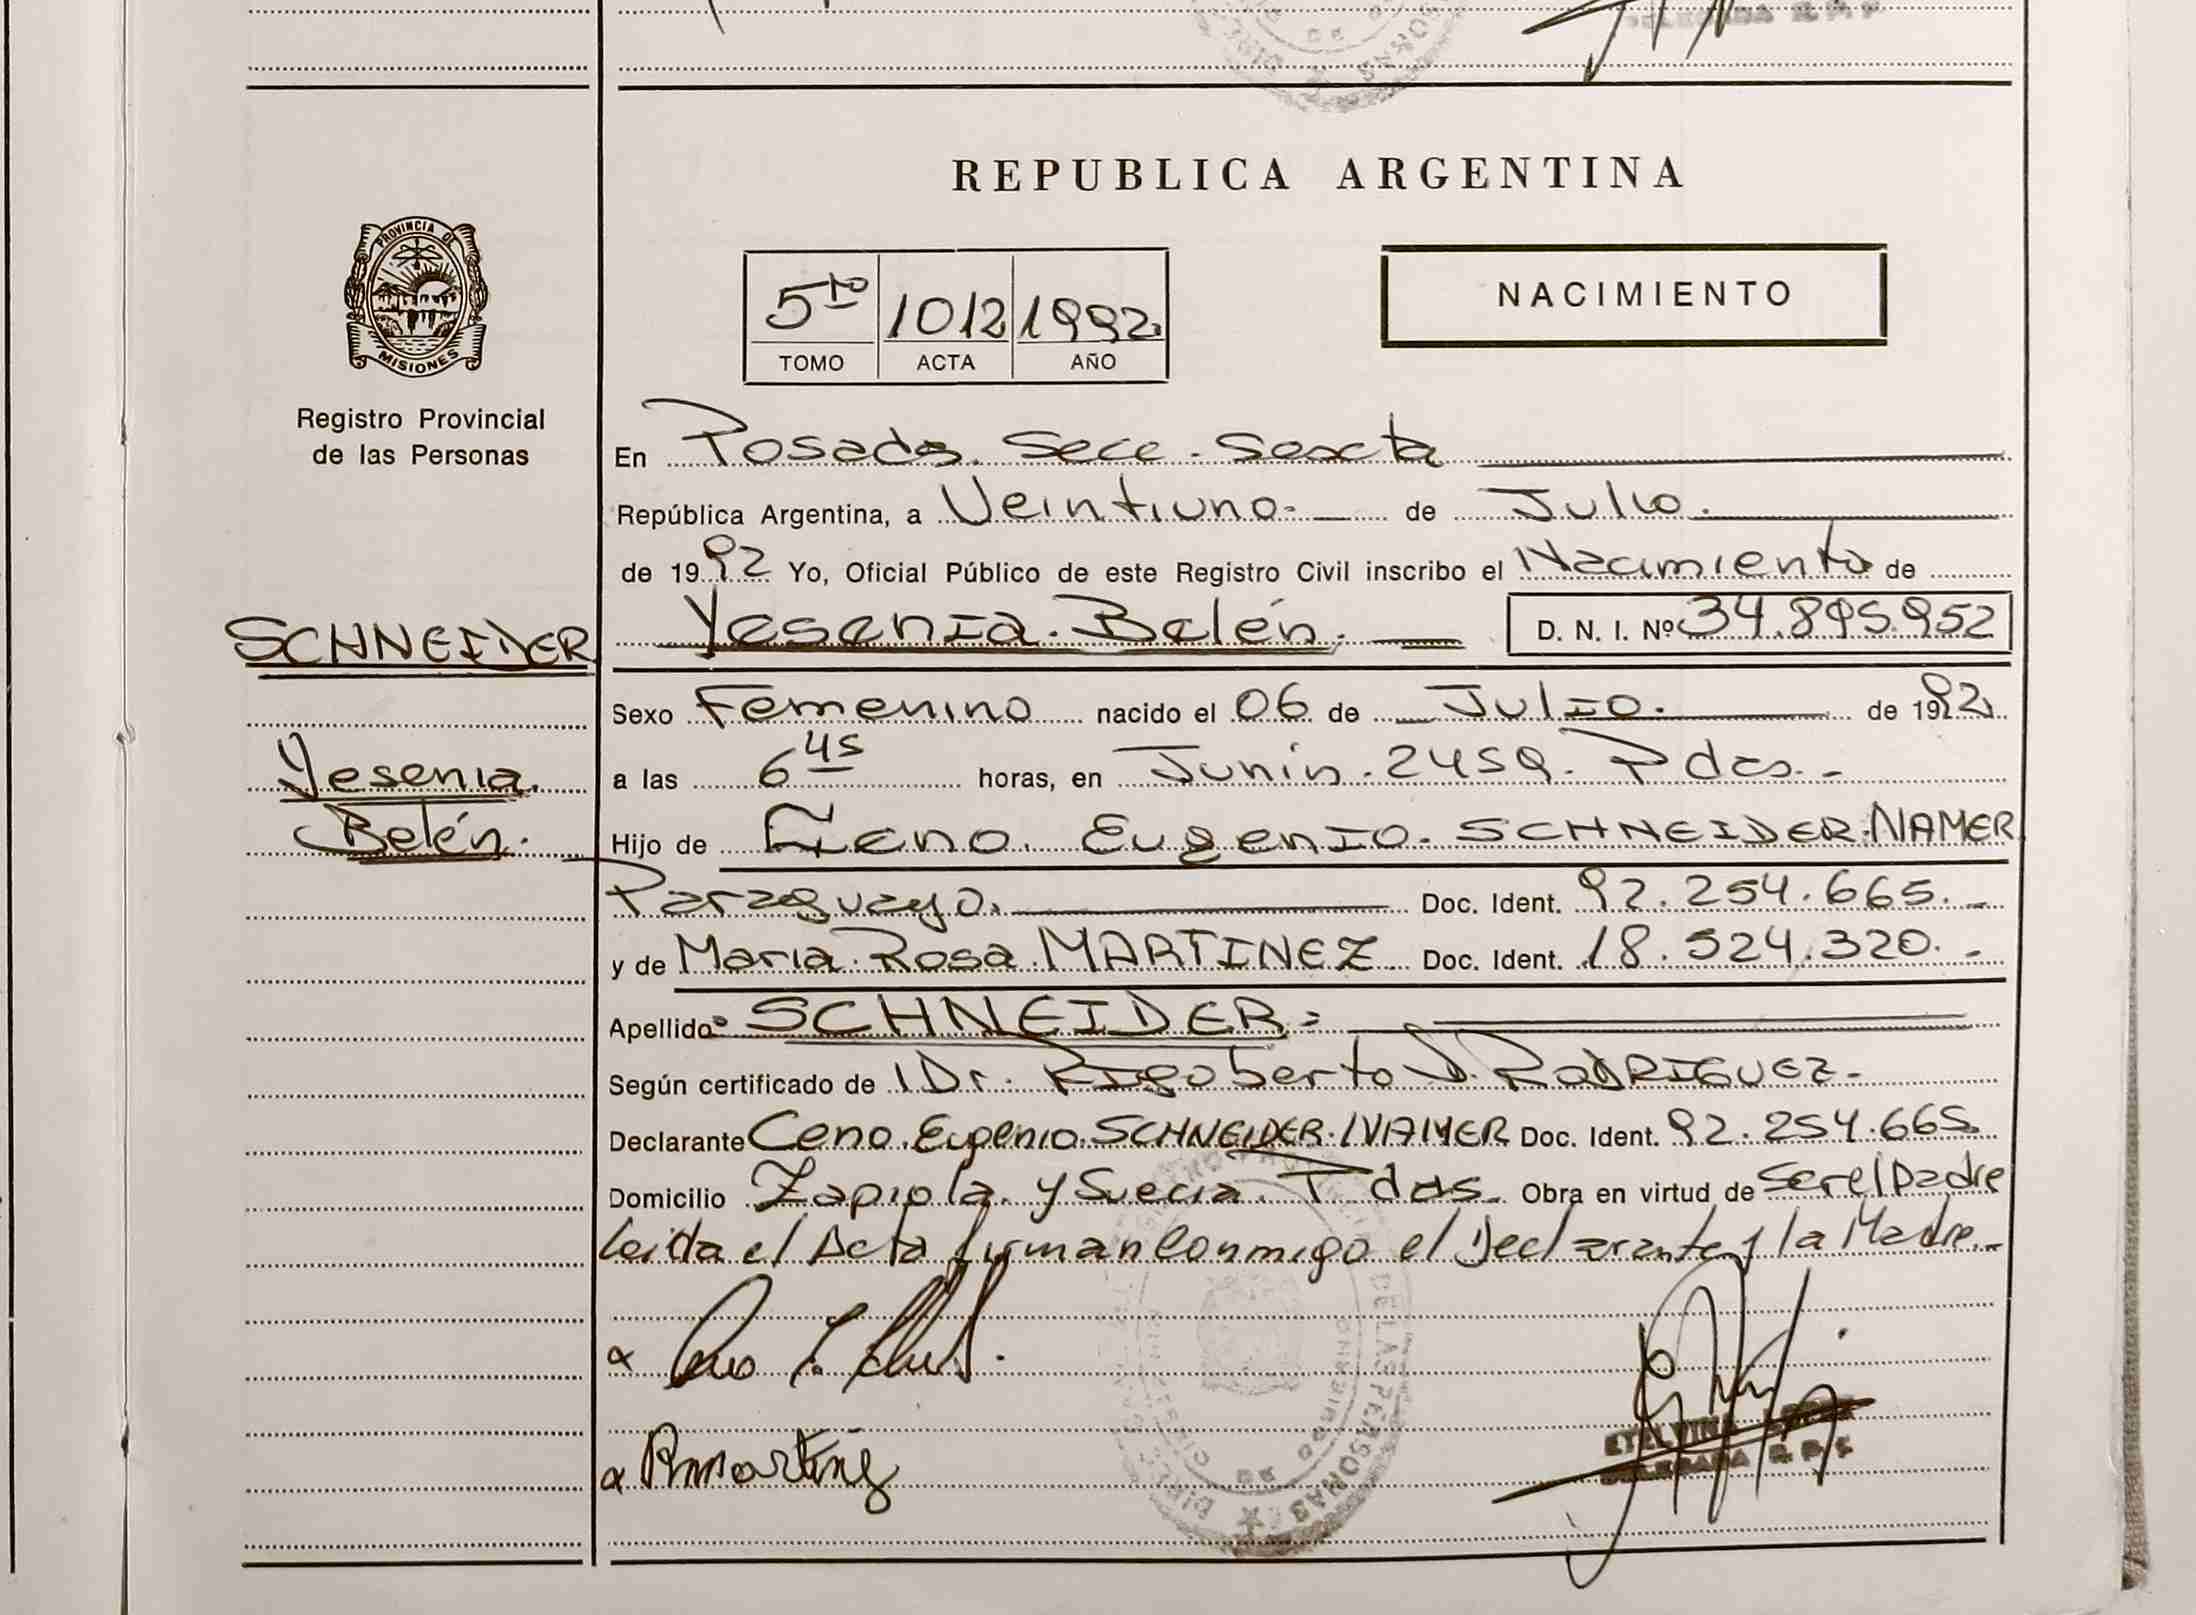 DELEGADA R. P. P.
REPUBLICA ARGENTINA
PROVINCIA DE
MISIONES
Registro Provincial
de las Personas
5to 1012 1992
TOMO ACTA AÑO
NACIMIENTO
En Posadas. Secc. Sexta
República Argentina, a Veintiuno. de Julio.
de 1992 Yo, Oficial Público de este Registro Civil inscribo el Nacimiento de
SCHNEIDER
Yesenia. Belén. D. N. I. Nº 34.895.952
Sexo Femenino nacido el 06 de Julio. de 1992
Yesenia.
Belén.
a las 6 45 horas, en Junin. 2459. Pdas.-
Hijo de Ceno. Eugenio. SCHNEIDER. NAMER
Paraguayo. Doc. Ident. 92.254.665.-
y de Maria. Rosa. MARTINEZ Doc. Ident. 18.524.320.-
Apellido SCHNEIDER.=
Según certificado de Dr. Rigoberto RODRIGUEZ.-
Declarante Ceno. Eugenio. SCHNEIDER. NAMER Doc. Ident. 92.254.665.
Domicilio Zapiola. y Suecia. Pdas. Obra en virtud de Ser el Padre
Leida el Acta firman Conmigo el Declarante y la Madre.-
DE LAS PERSONAS
RMartinez
DELEGADA R. P. P.